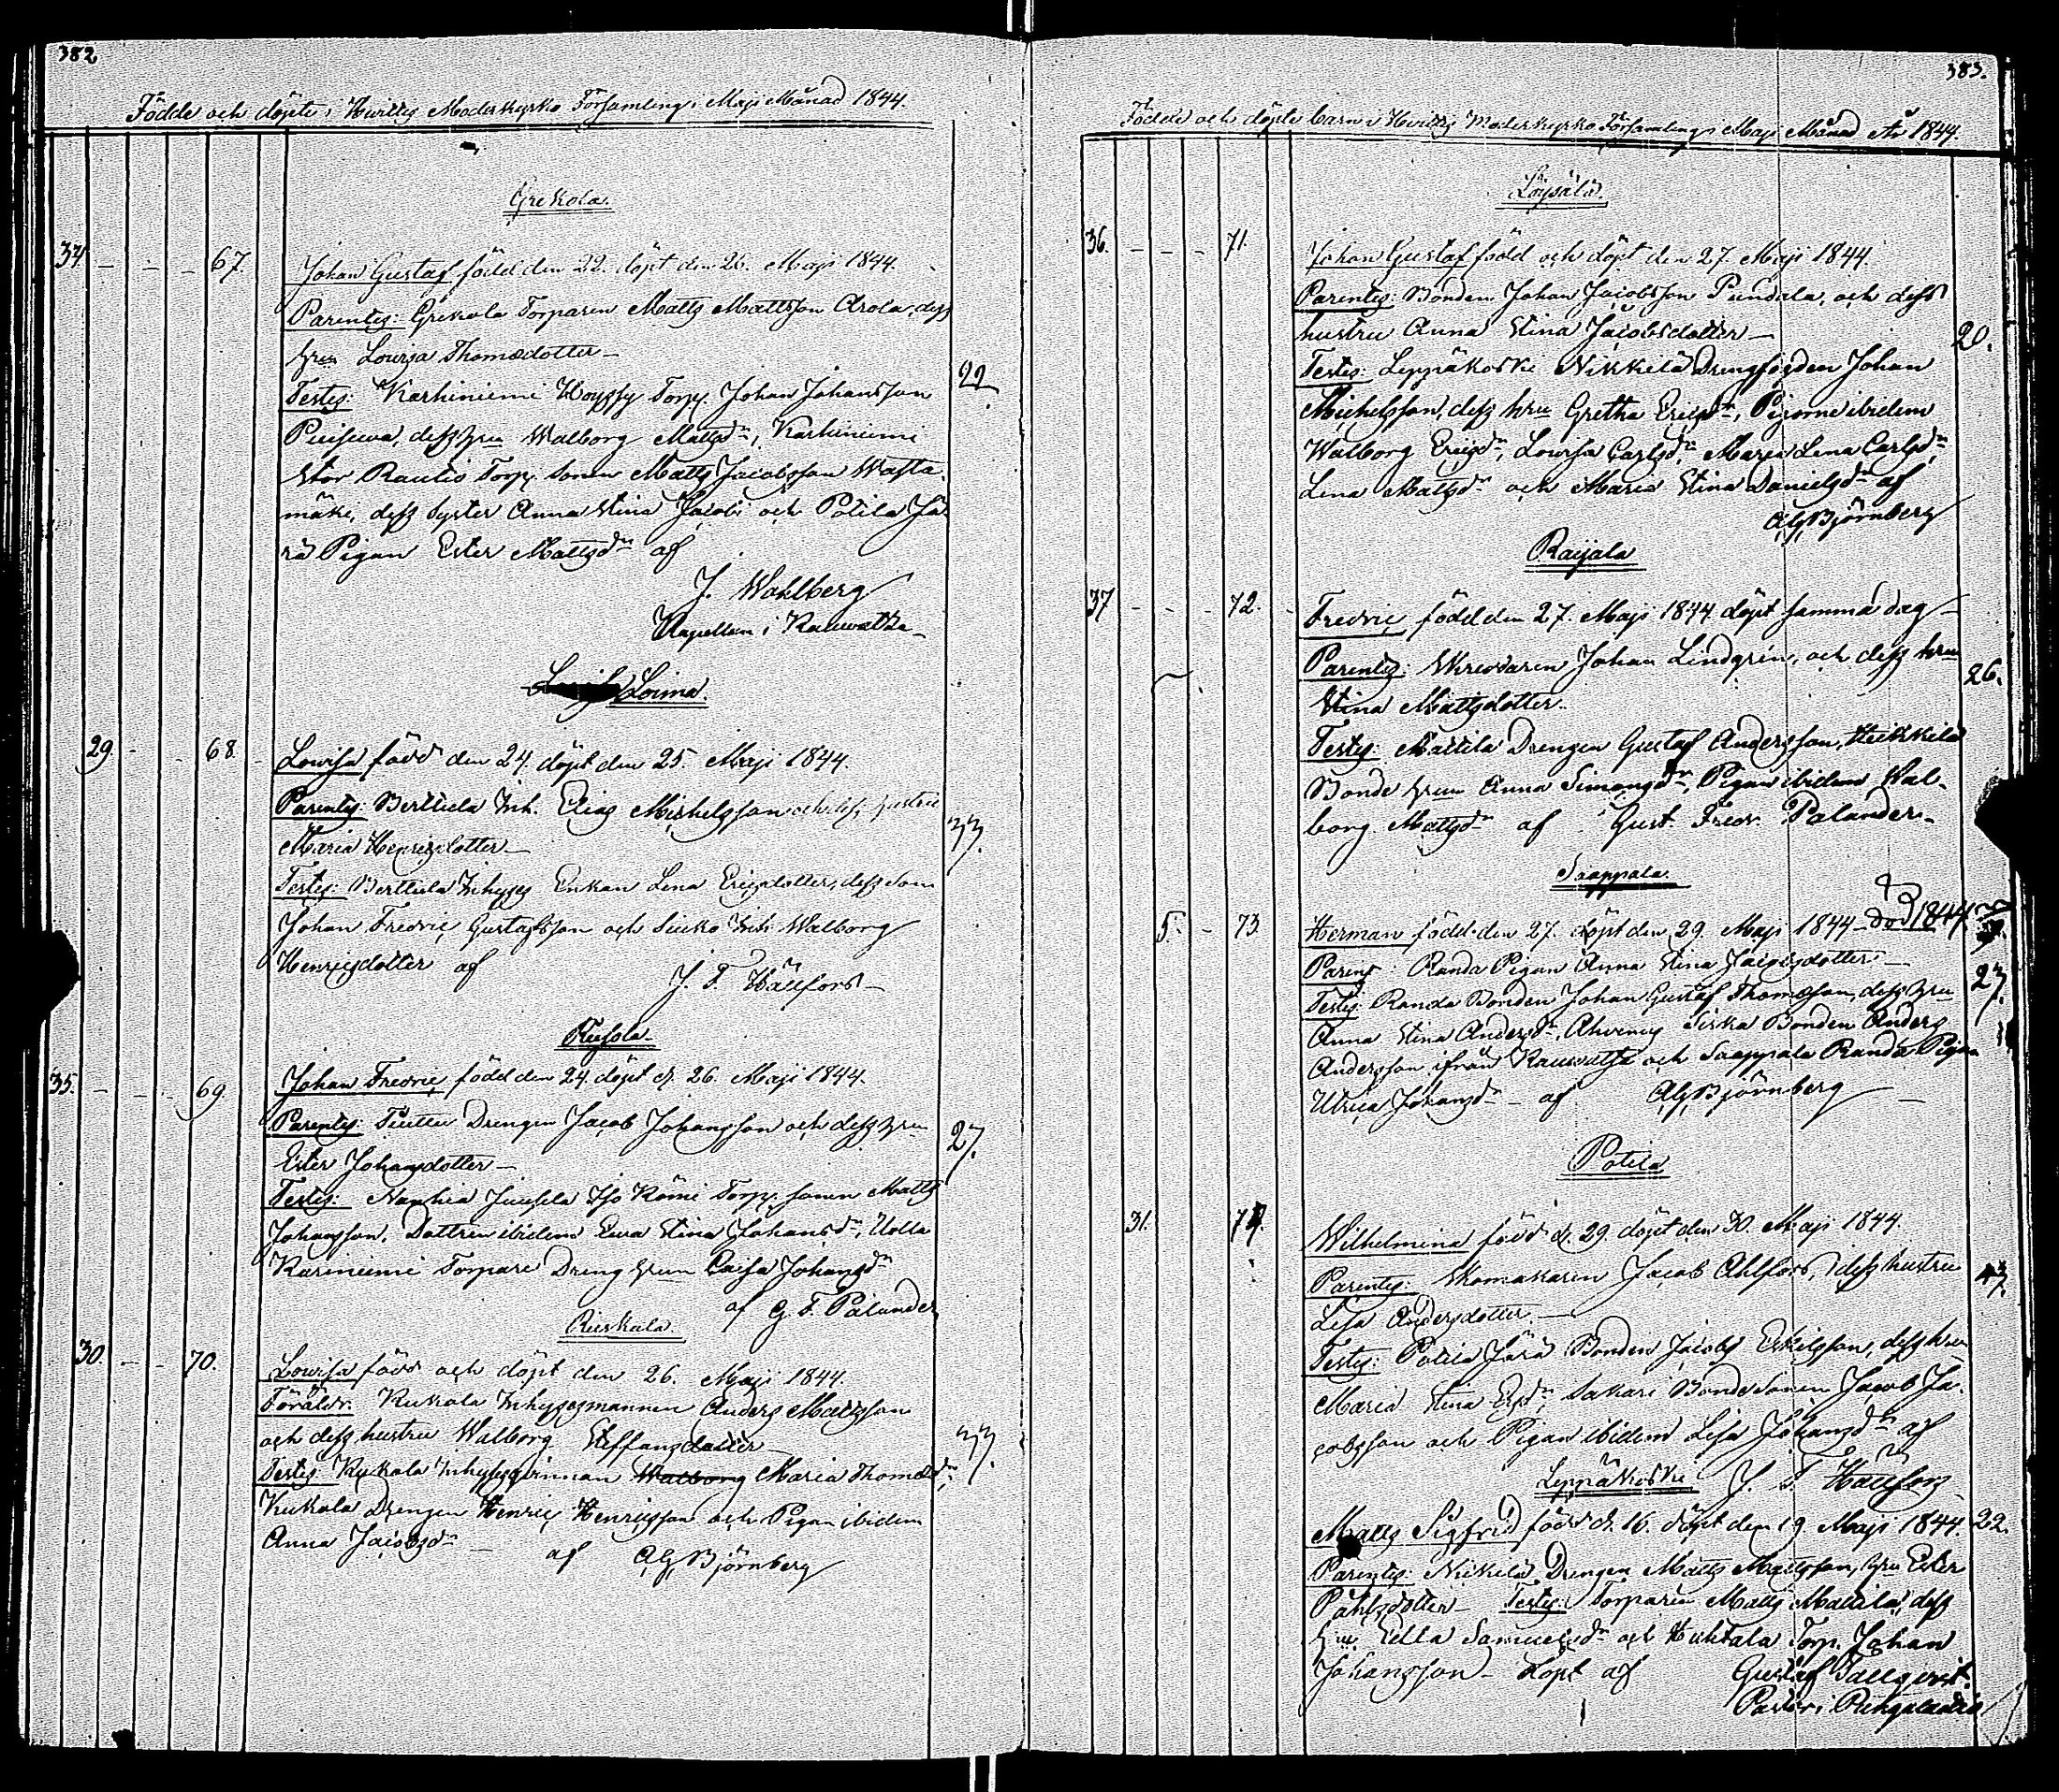 382
Födde och döpte i Hvittis Moderkyrko Församling i Maji Månad 1844.
Grekola.
34 - - - 67.
Johan Gustaf född den 22. döpt den 26. Maji 1844.
Parentes: Grekola Torparen Matts Mattsson Arola, dess
hru Lovisa Thomædotter -
22
Testes: Karhiniemi Torp. Johan Johansson
dess hru Walborg Mattsdr, Karhiniemi
Stor Rautio Torp. Sonen Matts Jacobsson Wasta-
mäki, dess Syster Anna Stina Jacobs och Potila Jä-
rä Pigan Ester Mattsdr af
J. Wahlberg
Kapellan i Kauvatsa
Loima.
29. - - 68.
Lovisa född den 24. döpt den 25. Maji 1844.
Parentes: Berttula Inh. Elias Michelsson och dess hustru
Maria Henricsdotter -
33.
Testes: Berttula Inhyses Enkan Lena Ericsdotter, dess Son
Johan Fredric Gustafsson och Inh. Walborg
Henricsdotter af
J. F. Hällfors -
35. - - - 69.
Johan Fredric född den 24. döpt d. 26. Maji 1844.
Parentes: Drengen Jacob Johansson och dess hru
Ester Johansdotter -
27.
Testes: Nanhia Juusela Iso Torp. sonen Matts
Johansson, Dottren ibidem Eva Stina Johansdr,
Kariniemi Torpare Dreng hrun Caisa Johansdr
af G. F. Palander
Ruskala.
30. - - 70.
Lovisa född och döpt den 26. Maji 1844.
Föräldr. Kukola Inhysesmannen Anders Mattsson
och dess hustru Walborg Steffansdotter
33.
Testes: Kukola Inhysesqvinnan Walborg Maria Thomædr,
Kukola Drengen Henric Henricsson och Pigan ibidem
Anna Jacobsdr - af AGBjörnberg
383.
Födde och döpte barn i Hvittis Moderkyrko Församling i Maji Månad År 1844.
36. - - - 71.
Johan Gustaf född och döpt den 27. Maji 1844.
Parentes: Bonden Johan Jacobsson Pundala, och dess
hustru Anna Stina Jacobsdotter -
20.
Testes: Leppäkoski Nikkilä Drengfogden Johan
Michelsson, dess hru Gretha Ericsdr, Pigorne ibidem
Walborg Ericsdr, Lovisa Carlsdr, Maria Lena Carlsdr,
Lena Mattsdr och Maria Stina Danielsdr af
AGBjörnberg
Raijala
37 - - - 72. -
Fredric född den 27. Maji 1844 döpt samma dag -
Parentes: Skreddaren Johan Lindgrén, och dess hru
26.
Stina Mattsdotter.
Testes: Mattila Drengen Gustaf Andersson, Heikkilä
Bonde hrun Anna Simonsdr, Pigan ibidem Wal-
borg Mattsdr af Gust. Fredr. Palander.
Saappala.
5. - 73.
Herman född den 27. döpt den 29. Maji 1844 - Död 1844
Parens: Randa Pigan Anna Stina Jacobsdotter -
27.
Testes: Randa Bonden Johan Gustaf Thomsson, dess hru
Anna Stina Andersdr, Ahvenus Siska Bonden Anders
Andersson ifrån Kauvatsa och Saappala Randa Pigan
Ulrica Johansdr - af AGBjörnberg -
Potila
31. 74.
Wilhelmina född d. 29. döpt den 30. Maji 1844.
Parentes: Skomakaren Jacob Ahlfors, dess hustru
Lisa Andersdotter. -
Testes: Potila Järä Bonden Jacob Eskilsson, dess hru
Maria Stina Ersdr, Sakari Bonde Sonen Jacob Ja-
cobsson och Pigan ibidem Lisa Johansdr af
Leppäkoski J. F. Hällfors
Matts Sigfrid född d. 16. döpt den 19. Maji 1844. 22.
Parentes: Nikkilä Drengen Matts Mattsson, hru Ester
Påhlsdotter - Testes: Torparen Matts Mattila, dess
hru Ulla Samuelsdr och Huhtala Torp. Johan
Johansson - Döpt af Gustaf Tallqvist.
Pastor i Pungalaitio